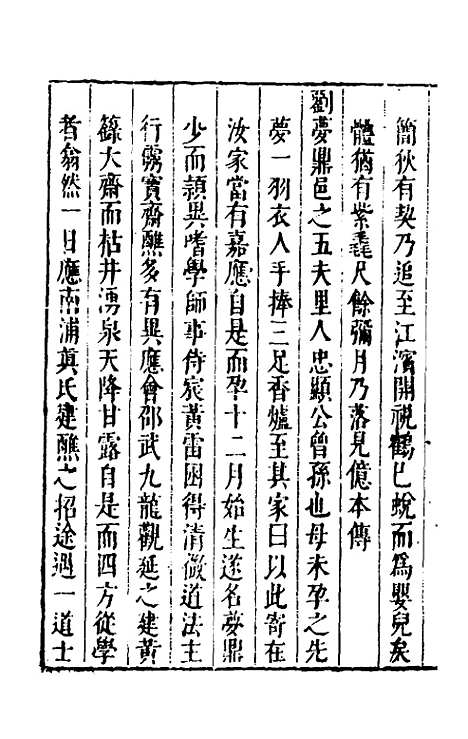 簡狄有契乃追至江濱開視鶴已蛻而為嬰兒矣
體猶有紫毳尺餘彌月乃落見億本傳
劉夢鼎邑之五夫里人忠顯公曾孫也母未孕之先
夢一羽衣人手捧三足香爐至其家曰以此寄在
汝家當有嘉應自是而孕十二月始生遂名夢鼎
少而穎異嗜學師事侍宸黃雷困得清微道法主
行霛寶齋醮多有異應會邵武九龍觀延之建黃
籙大齋而枯井湧泉天降甘露自是而四方從學
者翕然一日應南浦真氏建醮之招途遇一道士